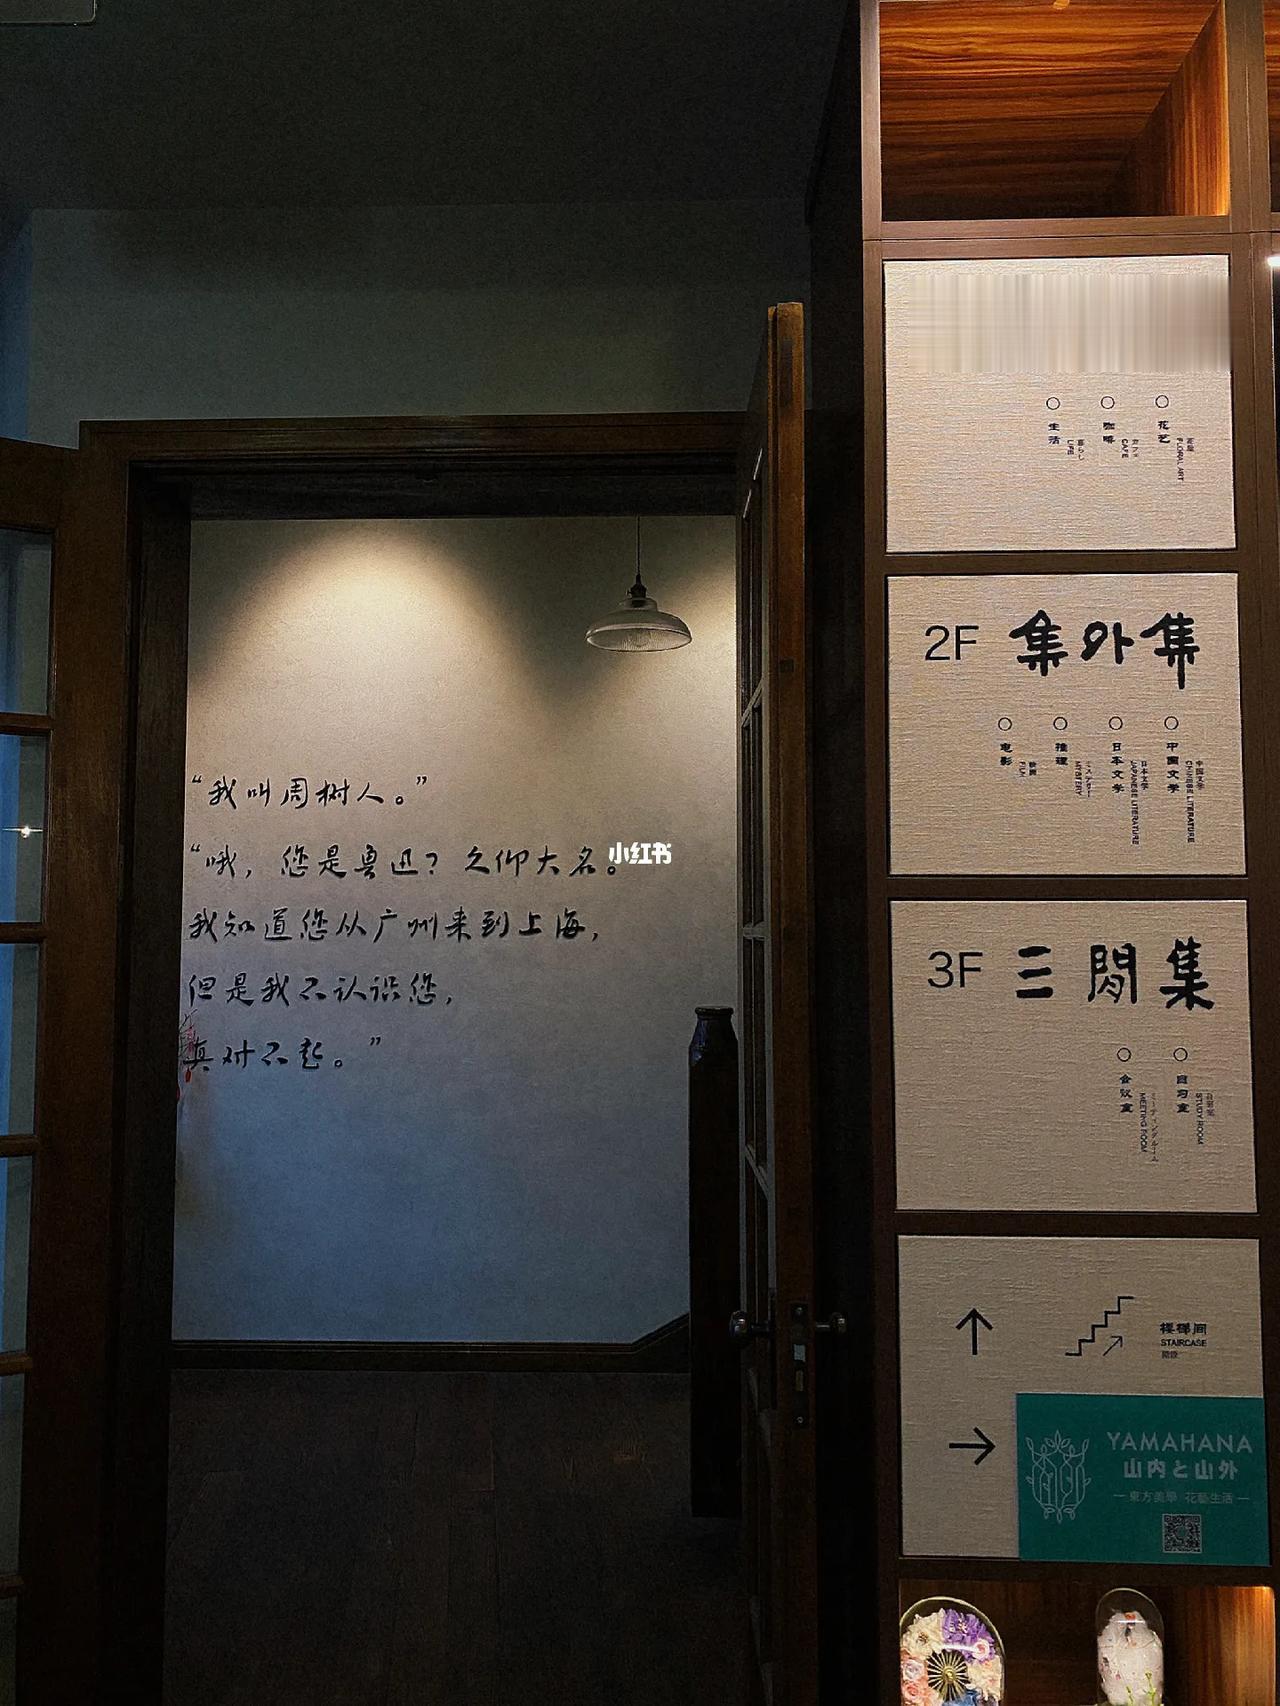 “我叫周树人。”
“哦，您是鲁迅？久仰大名。
我知道您从广州来到上海，
但是我不认识您，
真对不起。”
小红书
花艺
花藝
FLORAL ART
咖啡
カフェ
CAFE
生活
暮らし
LIFE
2F 集外集
中国文学
中国文学
CHINESE LITERATURE
日本文学
日本文学
JAPANESE LITERATURE
推理
ミステリー
MYSTERY
电影
映画
FILM
3F 三閒集
自习室
自習室
STUDY ROOM
会议室
ミーティングルーム
MEETING ROOM
楼梯间
STAIRCASE
階段
YAMAHANA
山内と山外
東方美學 花藝生活